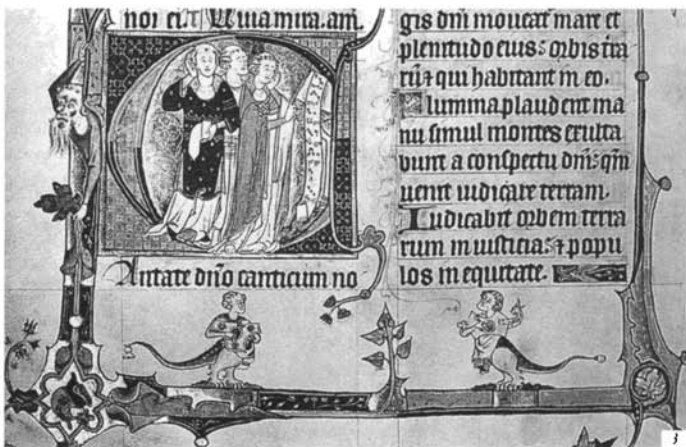 Quia mira. am.
Cantate dño canticum no
gis dñi moueat mare et
plenitudo eius: orbis t̃ra
rũ ⁊ qui habitant in eo.
Flumina plaudent ma
nu simul montes exulta
bunt a conspectu dñi: qm̃
uenit iudicare terram.
Iudicabit orbem terra
rum in iusticia: ⁊ popu
los in equitate.
3